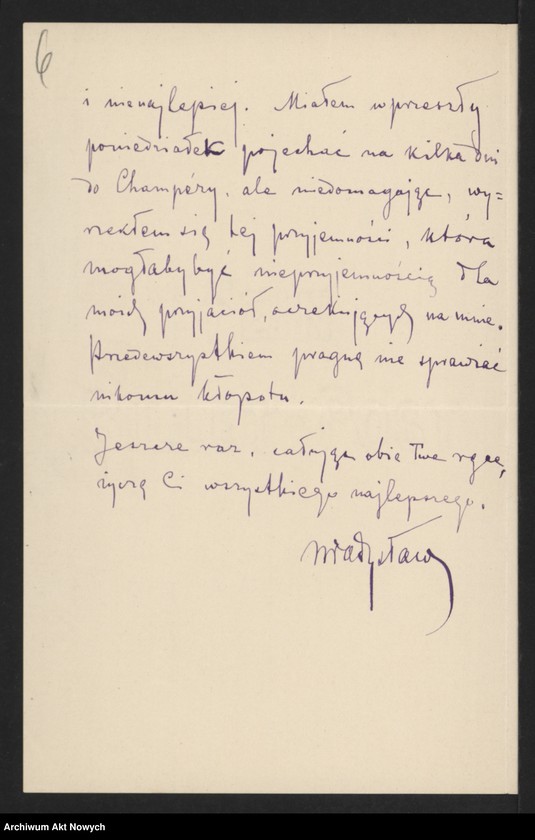 6
i nienajlepiej. Miałem w przeszły
poniedziałek pojechać na kilka dni
do Champéry, ale niedomagając, wy=
rzekłem się tej przyjemności, która
mogłaby być nieprzyjemnością dla
moich przyjaciół, oczekujących na mnie.
Przedewszystkiem pragnę nie sprawiać
nikomu kłopotu.
Jeszcze raz, całując obie Twe ręce,
życzę Ci wszystkiego najlepszego.
Władysław
Archiwum Akt Nowych